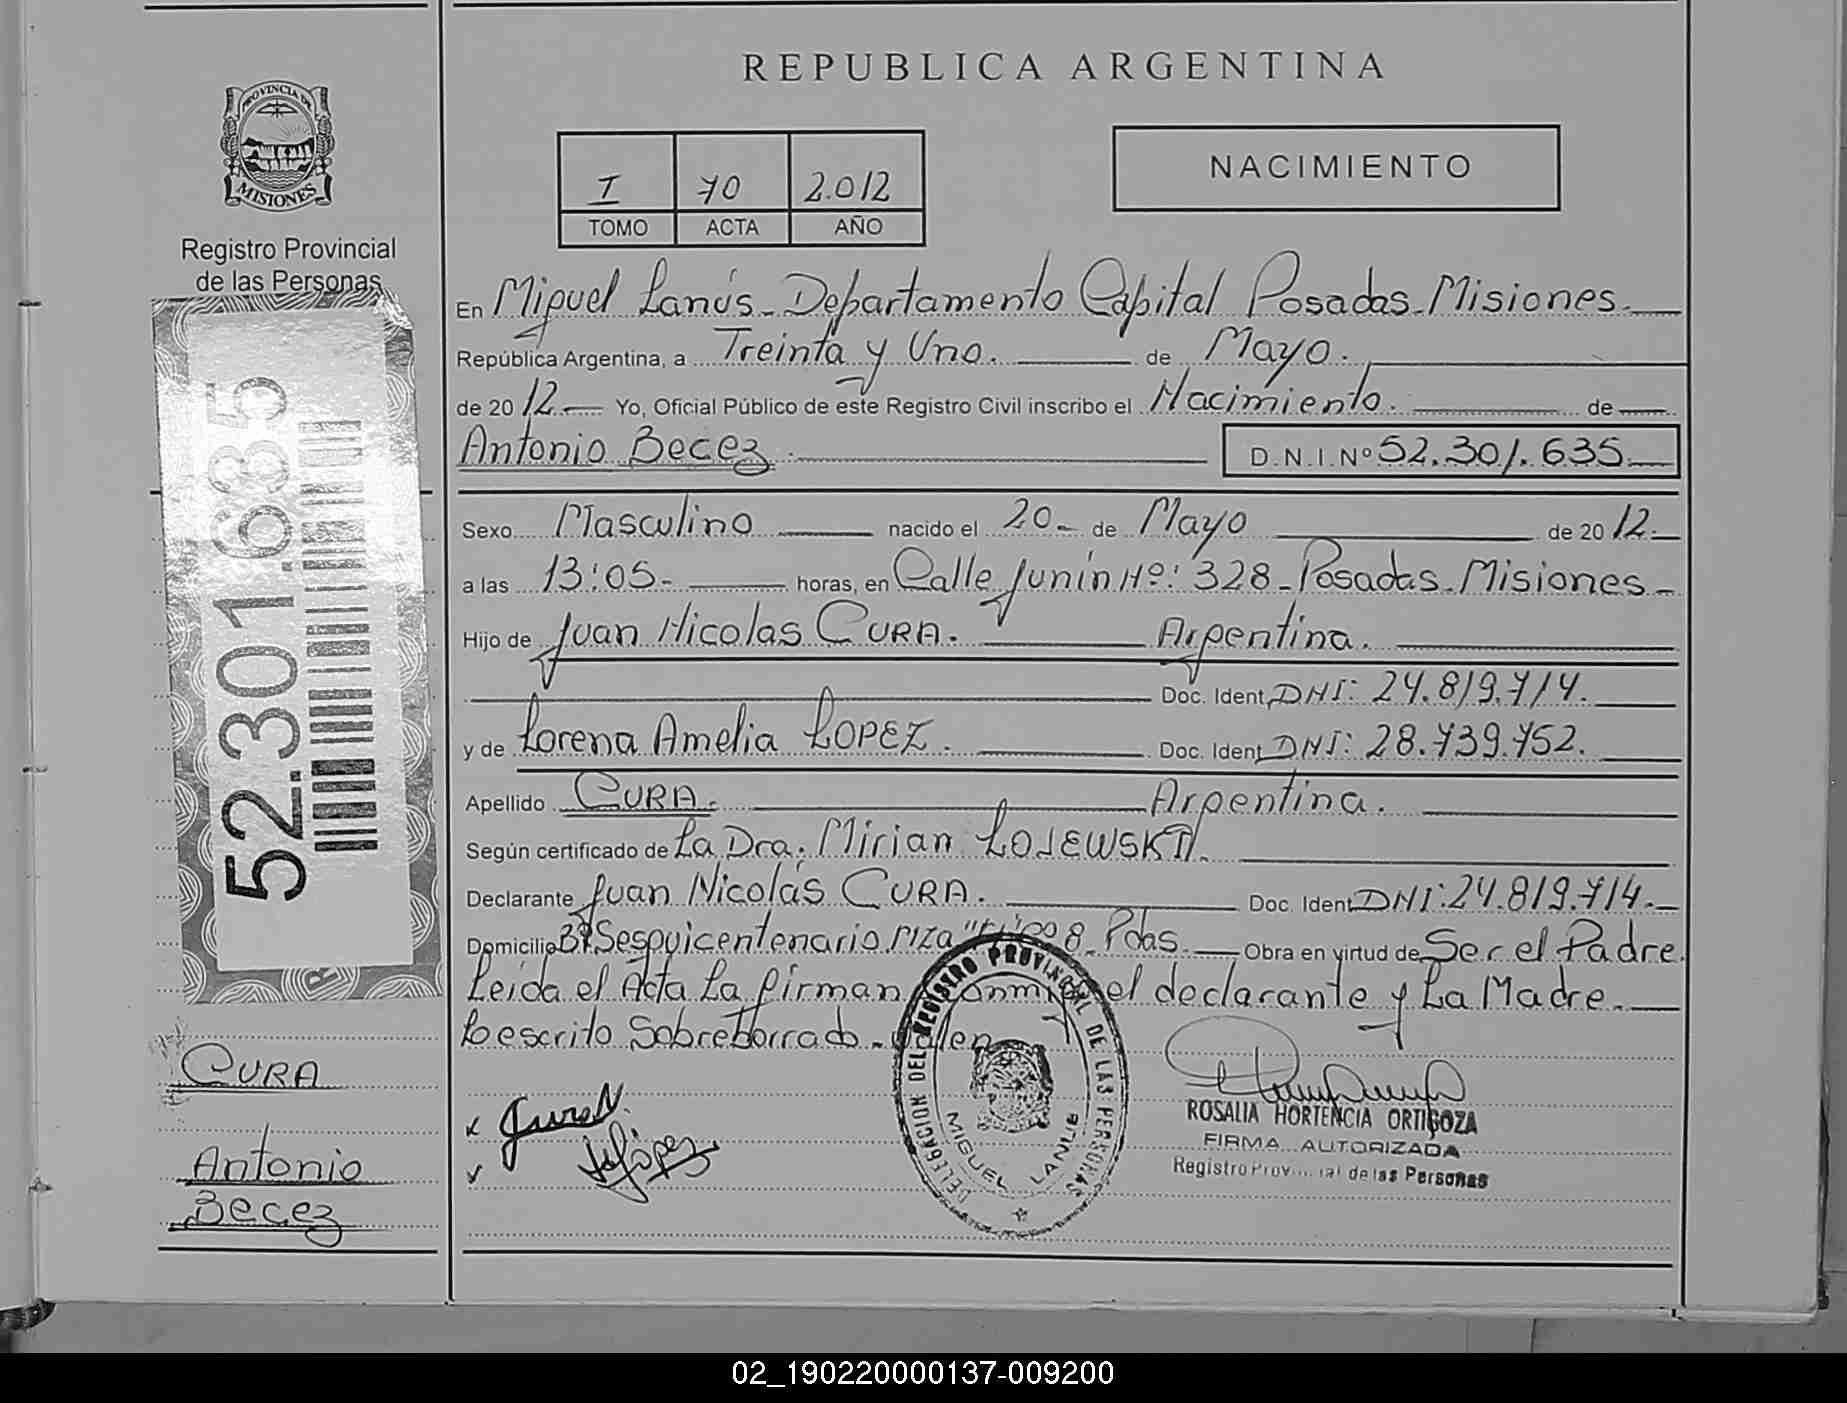 REPUBLICA ARGENTINA
PROVINCIA DE
MISIONES
Registro Provincial
de las Personas
52.301.635
CURA
Antonio
Becez
I 70 2.012
TOMO ACTA AÑO
NACIMIENTO
En Miguel Lanús - Departamento Capital Posadas - Misiones.
República Argentina, a Treinta y Uno. de Mayo.
de 2012 Yo, Oficial Público de este Registro Civil inscribo el Nacimiento. de
Antonio Becez. D.N.I.Nº 52.301.635
Sexo Masculino nacido el 20 - de Mayo de 2012.-
a las 13:05.- horas, en Calle Junín Nº: 328 - Posadas - Misiones -
Hijo de Juan Nicolas CURA. Argentina.
Doc. Ident. DNI: 24.819.714.
y de Lorena Amelia LOPEZ. Doc. Ident. DNI: 28.739.752.
Apellido CURA. Argentina.
Según certificado de La Dra. Mirian LOJEWSKI.
Declarante Juan Nicolás CURA. Doc. Ident. DNI: 24.819.714.-
Domicilio Bº Sesquicentenario MZA 8 - Pdas. Obra en virtud de Ser el Padre
Leída el Acta La firman el declarante y La Madre.
Lo escrito Sobreborrado - Valen
DELEGACION DEL REGISTRO PROVINCIAL DE LAS PERSONAS
MIGUEL LANUS
ROSALIA HORTENCIA ORTIGOZA
FIRMA AUTORIZADA
Registro Provincial de las Personas
02_190220000137-009200